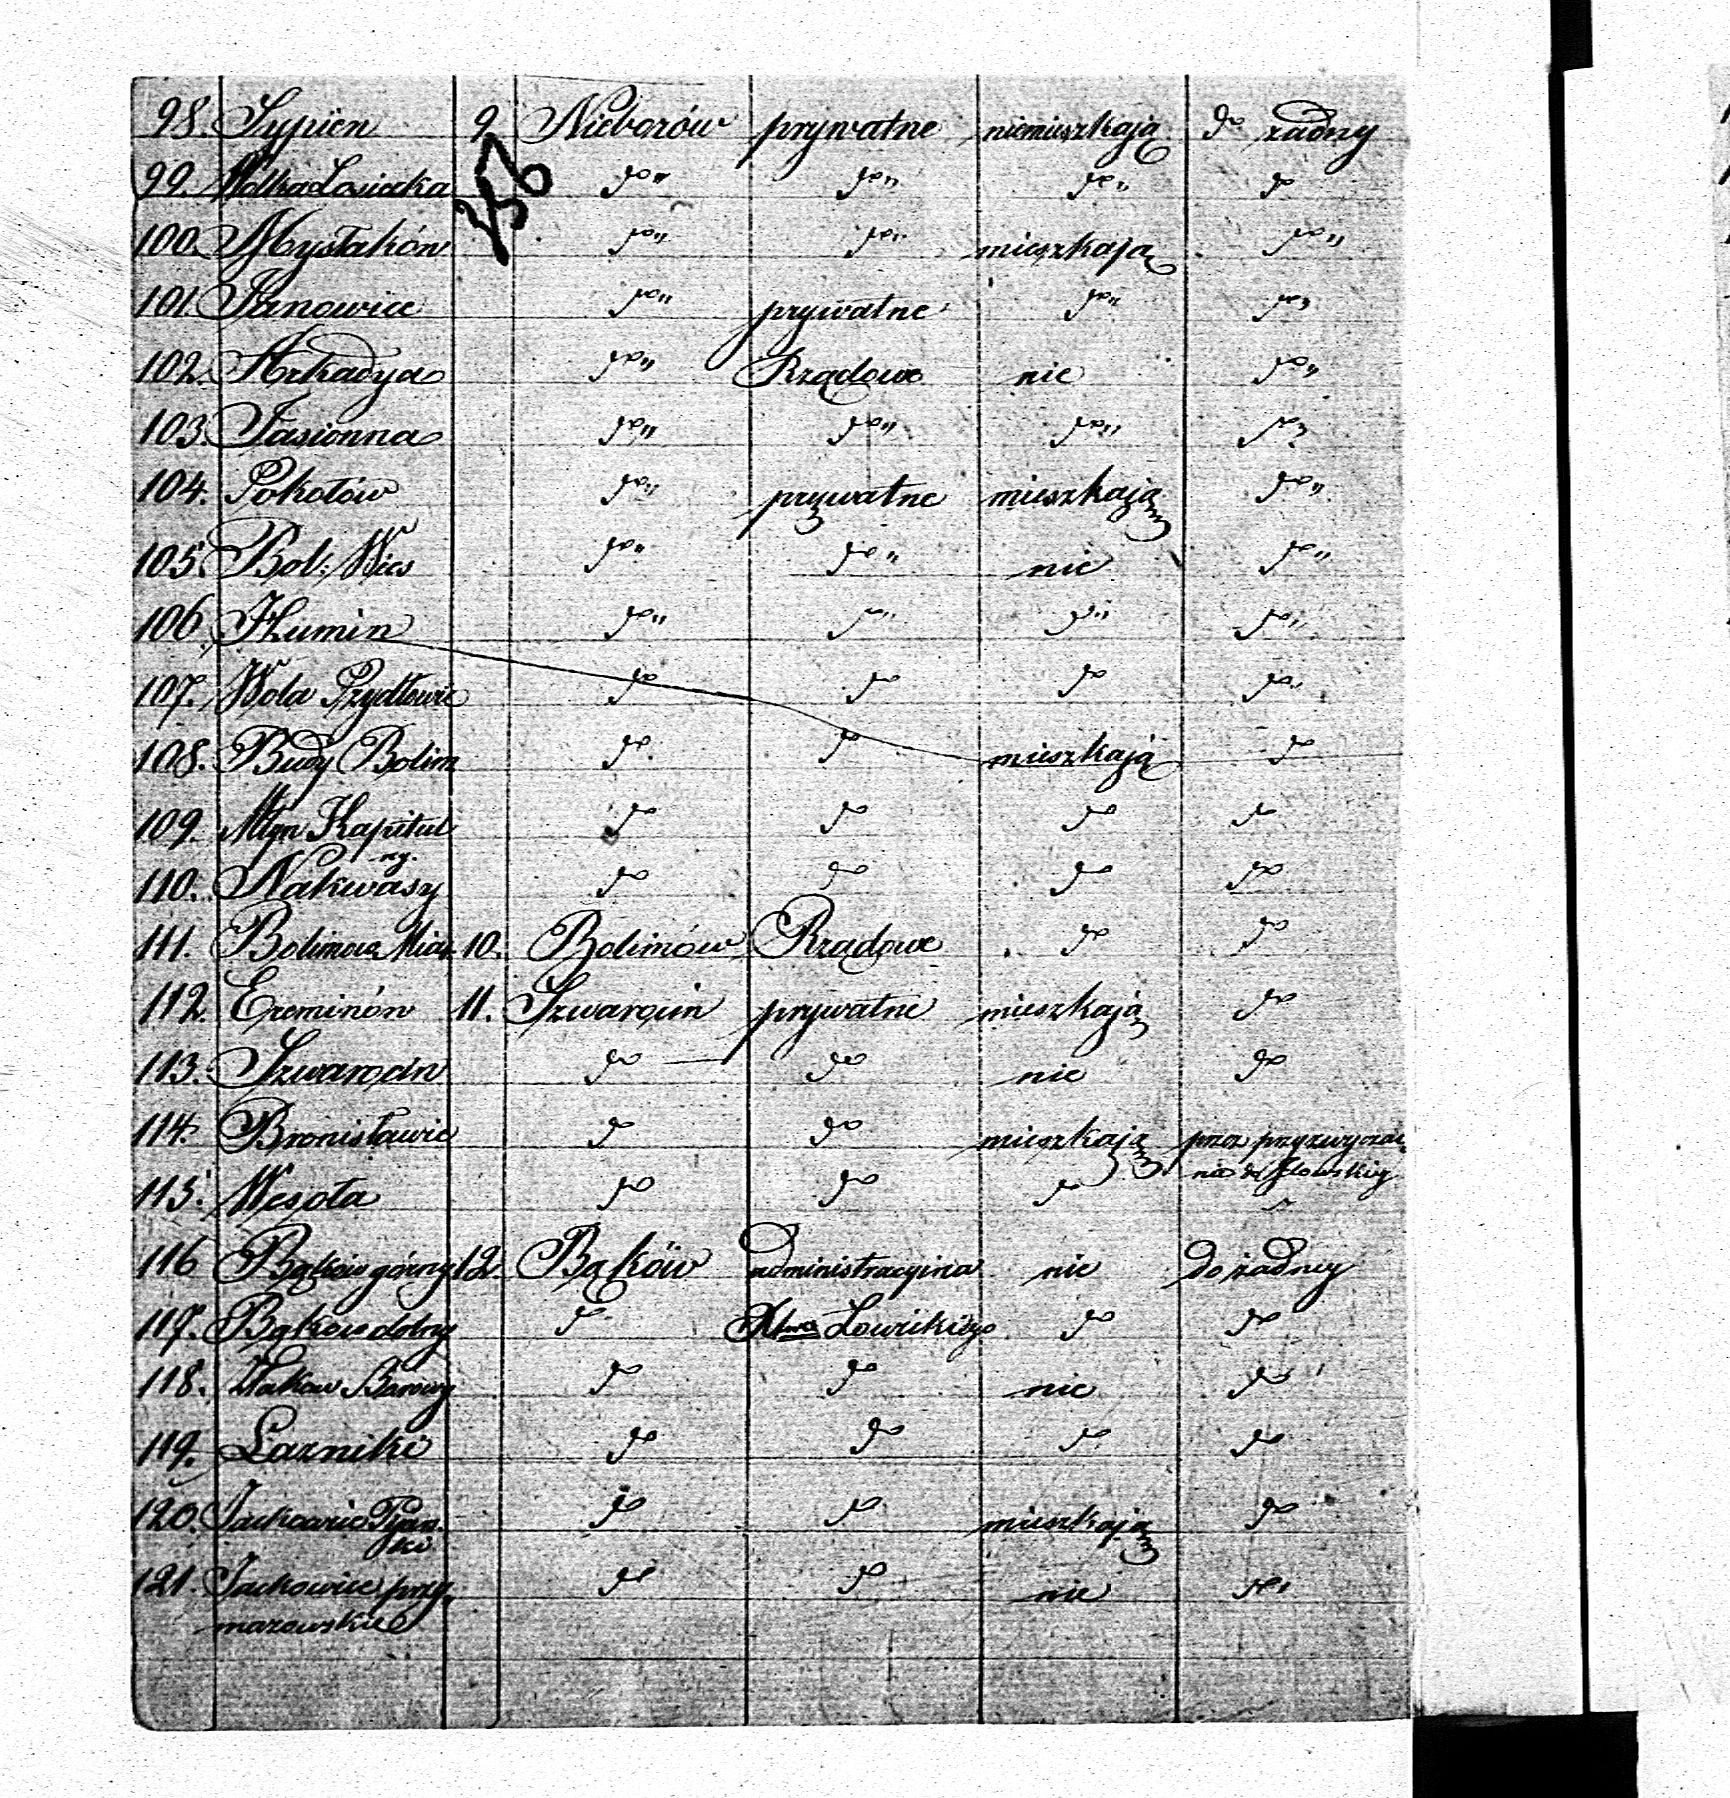 98. Sypien 9 Nieborów prywatne niemieszkają do żadny
99. Wolka Lasiecka do" do" do" do
100. Mysłaków do" do" mieszkają do"
101. Janowice do" prywatne do" do"
102. Arkadya do" Rządowe nie do"
103. Jasionna do" do" do" do"
104. Pokotów do" prywatne mieszkają do"
105. Bol: Wies do" do" nie do"
106 Humin do" do" do" do"
107. Wola Szydłowie do do do do"
108. Budy Bolim do do mieszkają do
109. Młyn Kapitul do do do do
ny.
110. Nakwasy do do do do
111. Bolimow Mias 10. Bolimów Rządowe do do
112. 11. prywatne mieszkają do
113. do do nie do
114. Bronisławie do do mieszkają
115. Wesoła do do do
116 Bąków górny 12 Bąków administracyina nie do żadney
117. Bąkow dolny do Xtwa Łowickiego do do
118. Złakow Borowy do do nie do
119. Lazniki do do do do
120. Jackowice do do mieszkają do
121. Jackowice do do nie do